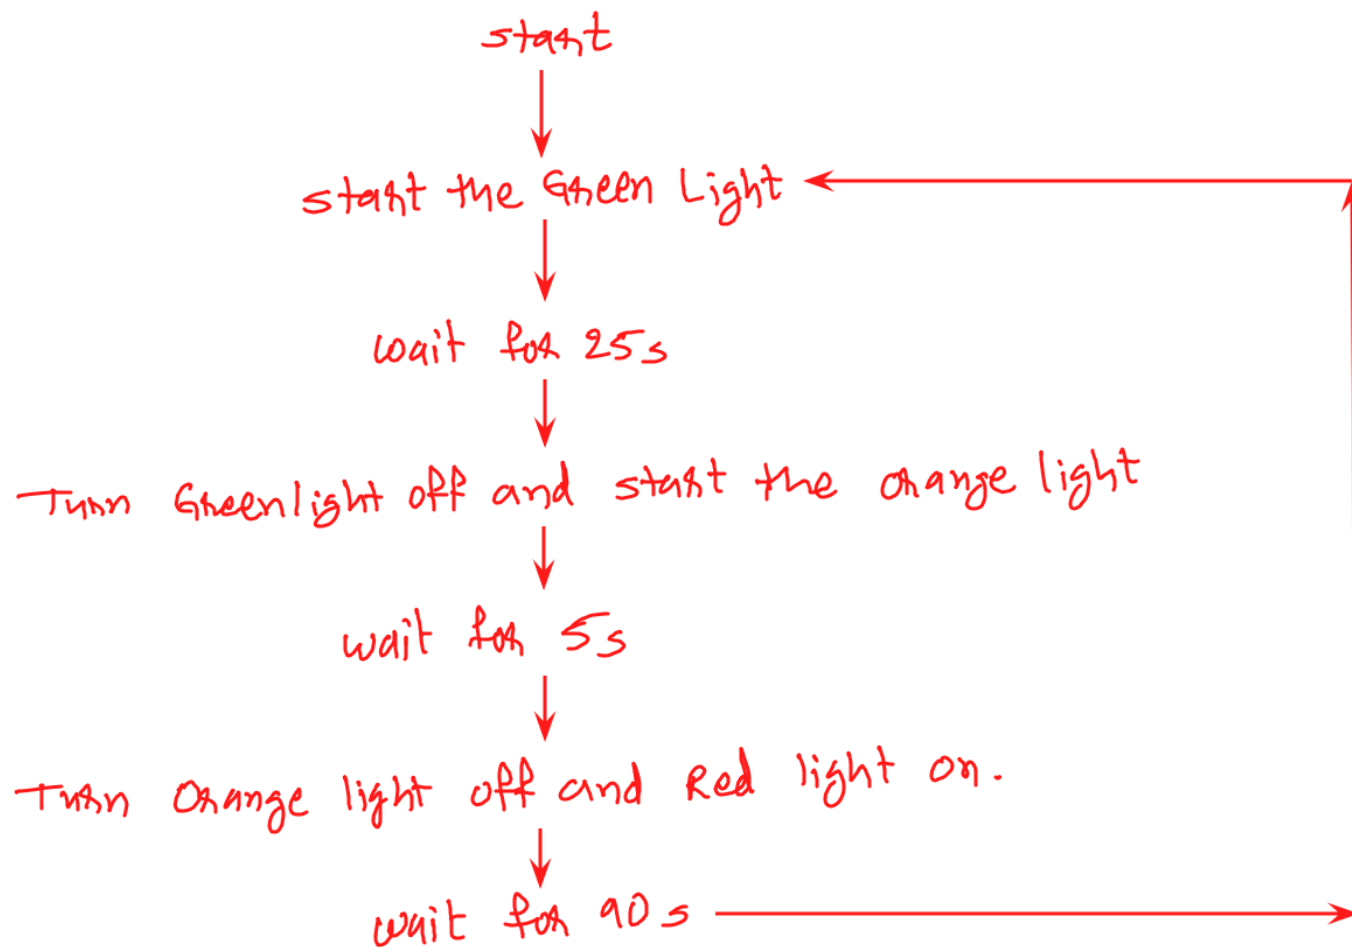 start
start the Green Light
wait for 25s
Turn Greenlight off and start the orange light
wait for 5s
Turn Orange light off and Red light on.
wait for 90s